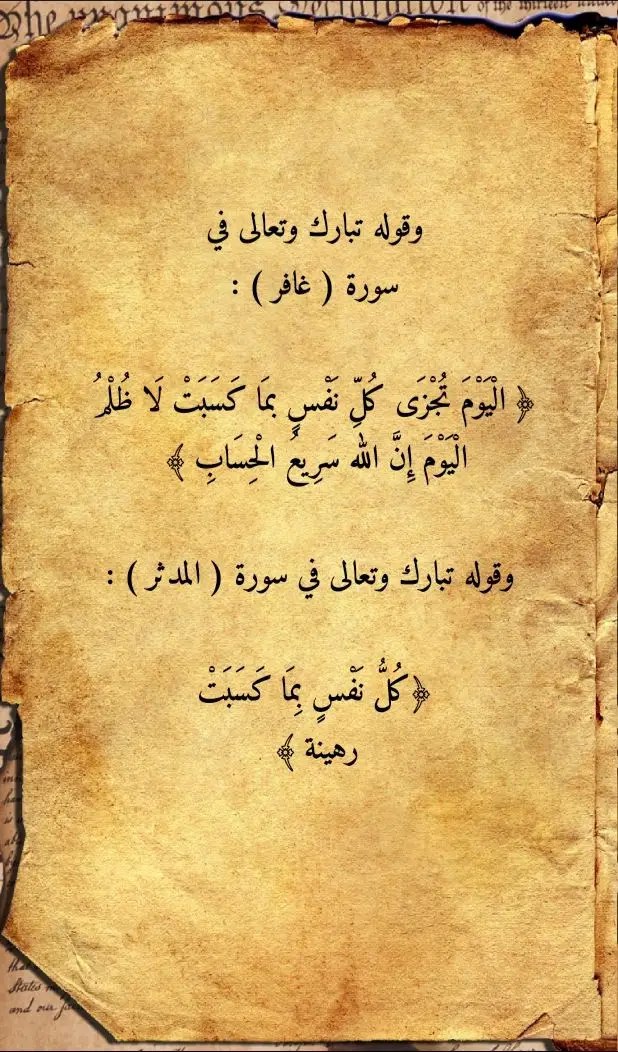 The unanimous Declaration of the thirteen united
وقوله تبارك وتعالى في
سورة ( غافر ) :
﴿ الْيَوْمَ تُجْزَى كُلِّ نَفْسٍ بِمَا كَسَبَتْ لَا ظُلْمُ
الْيَوْمَ إِنَّ الله سَرِيعُ الْحِسَابِ ﴾
وقوله تبارك وتعالى في سورة ( المدثر ) :
﴿كُلُّ نَفْسٍ بِمَا كَسَبَتْ
رهينة ﴾
States
and our